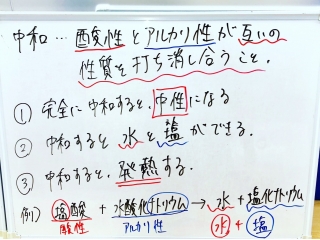 中和…酸性とアルカリ性が互いの
性質を打ち消し合うこと。
① 完全に中和すると、中性になる
② 中和すると水と塩ができる。
③ 中和すると、発熱する。
例) 塩酸 + 水酸化ナトリウム → 水 + 塩化ナトリウム
酸性 アルカリ性 水 + 塩